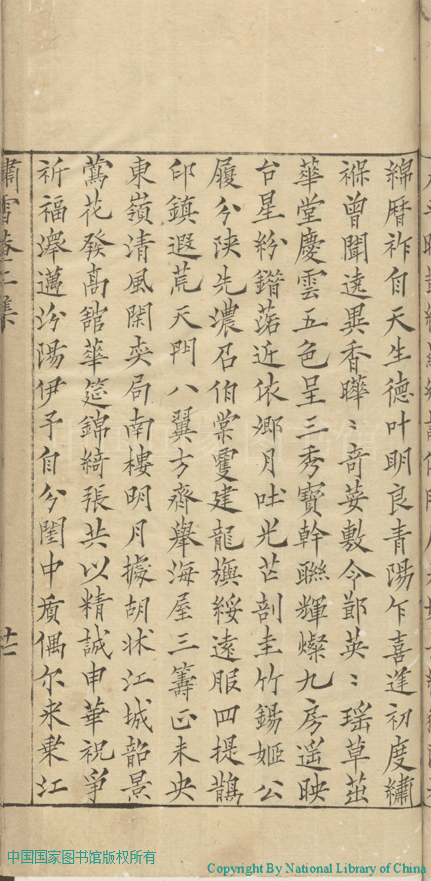 綿曆祚自天生德叶明良青陽乍喜逢初度繡
褓曾聞逺異香曄〻竒蓂敷今鄙英〻瑶草茁
華堂慶雲五色呈三秀寳幹聯輝燦九房遥映
台星紛錯落近依郷月吐光芒剖圭竹錫姬公
履分陕先濃召伯棠䨥建龍旗綏遠服四提鵲
印鎮遐荒天門八翼方齊舉海屋三籌正未央
東嶺清風閑奕局南樓明月據胡牀江城韶景
鶯花發髙舘華筵錦綺張共以精誠申華祝爭
祈福澤邁汾陽伊予自分閨中質偶尔来乗江
嘯雪菴二集
中国国家图书馆版权所有
Copyright By National Library of China